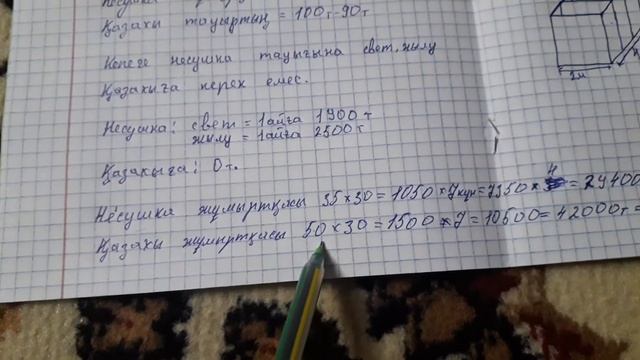 Қазакы тауыртың = 100т-90т
Көпеге несушка тауығына свет, жылу
Қазакыға керек емес.
Несушка: свет = 1айға 1900 т
жылу = 1айға 2500 т
Қазакыға: 0 т.
2м
Несушка жұмыртқасы 35×30=1050×7күн=7350×4=29400
Қазакы жұмыртқасы 50×30=1500×7=10500=42000т=